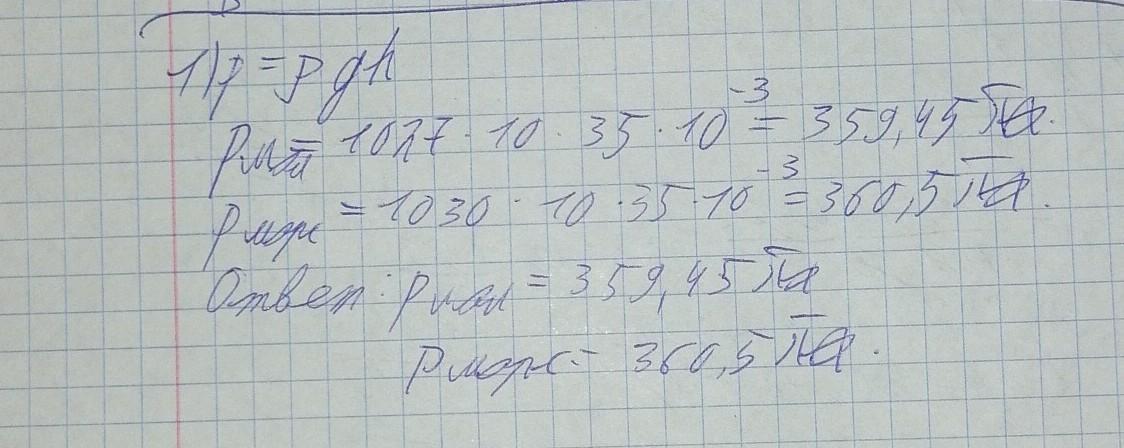 1) p = ρgh
Pмол = 1027 · 10 · 35 · 10⁻³ = 359,45 Па.
Pморс = 1030 · 10 · 35 · 10⁻³ = 360,5 Па.
Ответ: Pмол = 359,45 Па
Pморс = 360,5 Па.